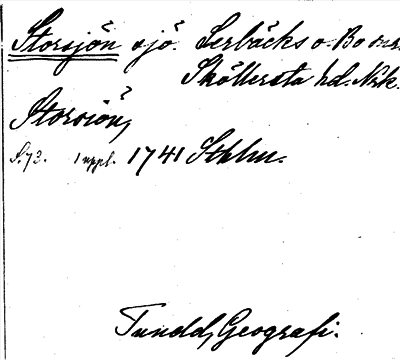 Storsjön sjö. Lerbäcks o. Bo snr.
Sköllersta hd. Nrk.
Storsiön,
S.73. 1 uppl. 1741 Sthlm.
Tuneld, Geografi.